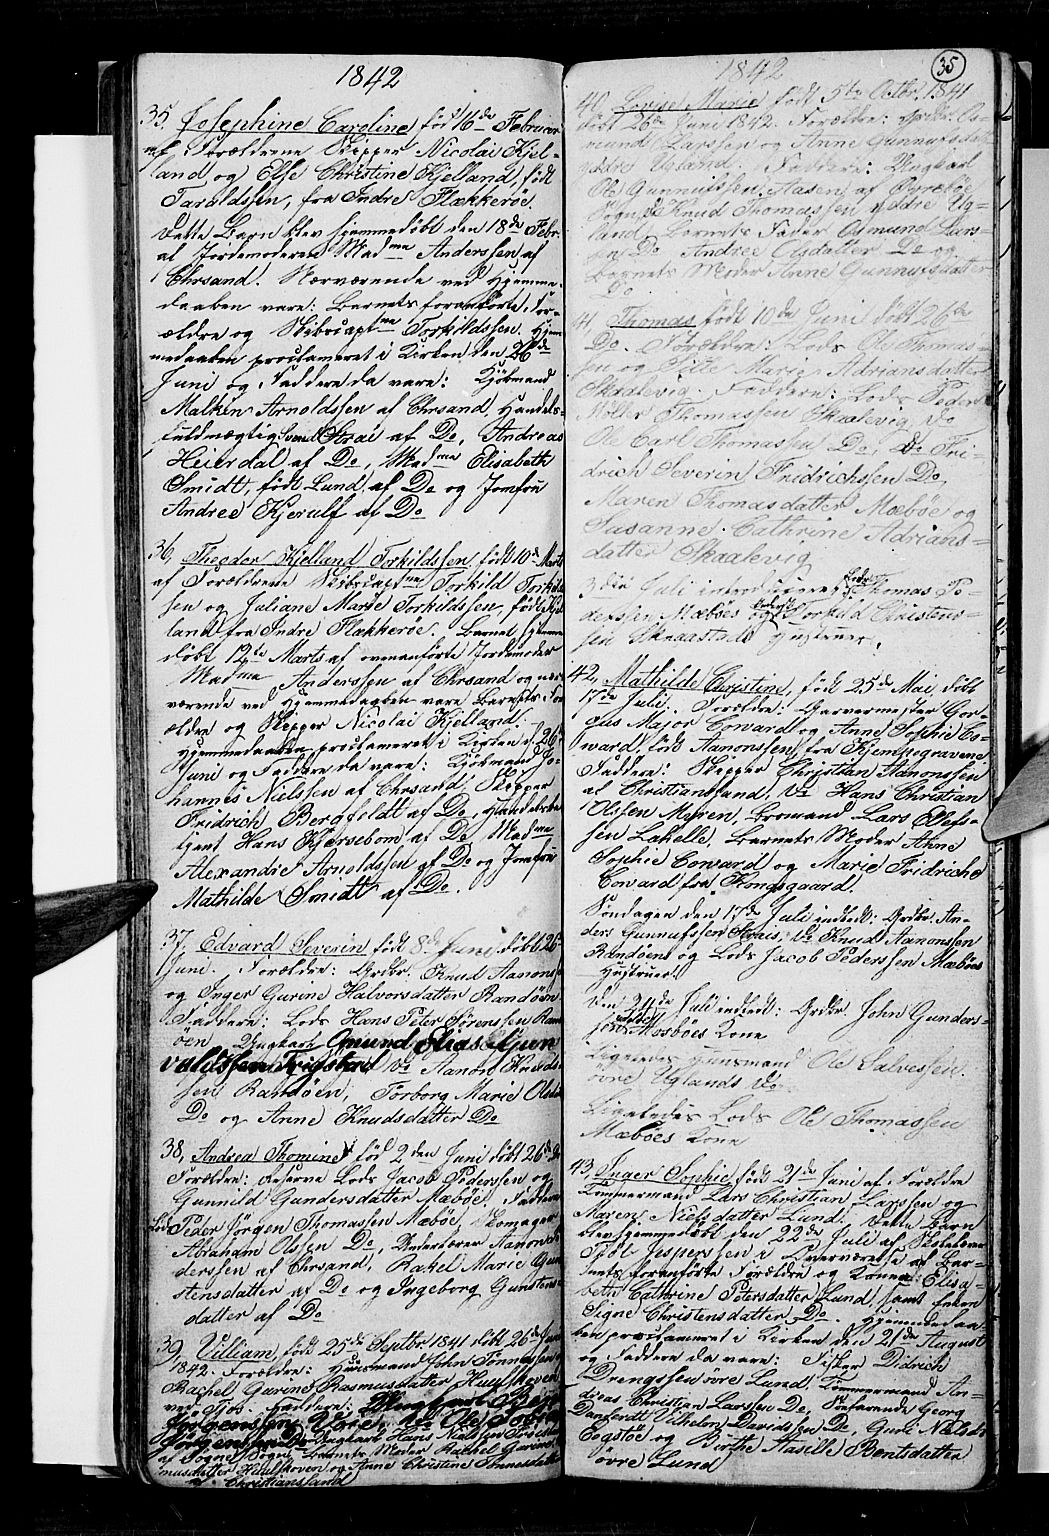 1842
35, Josephine Caroline, föd 16de Februar
af Forældrene Skipper Nicolai Kjel-
land og Else Christine Kjelland, född
Taraldssen, fra Indre Flækkeröe.
Dette Barn blev hjemmedöbt den 18de Febr.
af Jordemoderen Madme Anderssen af
Chrsand. Nærværende ved Hjemme-
daaben vare: Barnets foranförte For-
ældre og Skibscaptme Torkildssen. Hjem
medaaben proclameret i Kirken den 26de
Juni og Faddere da vare: Kjöbmand
Malkin Arnoldssen af Chrsand, Handels-
fuldmægtig Svend Strai af Do, Andreas
Heierdal af Do, Madme Elisabeth
Smidt, född Lund af Do og Jomfru
Andree Kjerulf af Do
36, Theodor Kjelland Torkildssen, född 10de Marts
af Forældrene Skibscaptme Torkild Torkild-
sen og Juliane Marie Torkildssen, född Kjel
land fra Indre Flækkeröe. Barnet hjemme
döbt 12te Marts af ovenanförte Jordemoder
Madme Anderssen af Chrsand og nær
værende ved Hjemmedaaben vare Barnets For
ældre og Skipper Nicolai Kjelland.
Hjemmedaaben proclameret i Kirken d. 26de
Juni og Faddere da vare: Kjöbmand Jo-
hannes Nielssen af Chrsand, Skipper
Fridrich Bergfeldt af Do, Handelsbe
tjent Hans Kjersebom af Do, Madme
Alexandrie Arnoldssen af Do og Jomfru
Mathilde Smidt af Do.
37, Edvard Severin födt 8de Juni, döbt 26de
Juni. Forældre: Grdbr. Knud Aanonss
og Inger Gurine Halvorsdatter Randöen
Faddere: Lods Hans Peter Sörenssen Rand
öen, Ungkarl Gmund Elias Gun
valdssen Trigstad Do Aanon Knuds-
sen Randöen, Torborg Marie Olsd
Do og Anne Knudsdatter Do
38, Andrea Thomine, föd 2den Juni döbt 26de Do
Forældre: Reserve Lods Jacob Pederssen og
Gunnild Gundersdatter Mæböe. Faddere
Lods Peder Jörgen Thomassen Mæböe, Skomager
Abraham Olssen Do, Aanon
derssen af Chrsand, Rakel Marie Gun
stensdatter af Do og Ingeborg Gunstens-
datter af Do
39, Villiam, födt 25de Septbr 1841 döbt 26de Juni
1842. Forældre: Huusmand John Tönnessen
Rachel Gurine Rasmusdatter Huulskoven
ved Faddere: Ungkarl
Jörgenssen Do Ole
Jörgenssen Do, Ungkarl Hans Nielssen
af Sogne Sogn, Barnets Moder Rachel Gurine
musdatter Huulskoven og Anne Christine Tönnesdatter
af Christianssand
1842
35
40, Lovise Marie födt 5te Octbr. 1841
döbt 26de Juni 1842. Forældre: Grdbr. Os-
mund Larssen og Anne Gunnufsdatter
yddre Ugland. Faddere: Ungkarl
Ole Gunnufssen Aasen af Öyeböe
Sogn, Do Knud Thomassen yddre Ug-
land, Barnets Fader Osmund Lars-
sen Do Andrea Olsdatter Do og
Barnets Moder Anne Gunnufsdatter
Do
41, Thomas födt 10de Juni döbt 26de
Do. Forældre: Lods Ole Thomas-
sen og Sille Marie Adriansdatter
Skaalevig. Faddere: Lods Peder
Möller Thomassen Skaalevig, Do
Ole Carl Thomassen Do, Do Fri-
drich Severin Fridrichssen Do,
Maren Thomasdatter Mæböe og
Susanne Cathrine Adrians-
datter Skaalevig
3die Juli introduceres: Lods Thomas Pe-
derssen Mæböes og Torkild Christens-
sen Hustruer.
42, Mathilde Christine, född 25de Mai, döbt
17de Juli. Forældre: Garvermester Gor-
gus Major Coward og Anne Sophie Co-
ward, född Aanonssen, fra Kjempegravene
Faddere: Skipper Christian Aanonssen
af Christianssand, Do Hans Christian
Olssen Meyen, Bomand Lars Ellefs-
sen Lahelle, Barnets Moder Anne
Sophie Coward og Marie Fridriche
Coward fra Kongsgaard.
Söndagen den 17de Juli indledt: Grdbr. An-
ders Gunnufssen Straies, Do Knud Aanonssen
Randöens og Lods Jacob Pederssen Mæböes
Hustruer.
Den 24de Juli indledt: Grdbr. John Gunders-
sen Mosböes Kone
Ligeledes Huusmand Ole Salvessen
övre Uglands Do.
Ligeledes Lods Ole Thomassen
Mæböes Kone
43, Inger Sophie, född 21de Juni af Forældre
Tömmermand Lars Christian Larssen og
Maren Nielsdatter Lund. Dette Barn
blev hjemmedöbt den 22de Juli af Skolelærer
Jespersen i Overværelse af Bar-
nets foranförte Forældre og Konen Elisa-
beth Cathrine Petersdatter Lund, samt Enken
Signe Christensdatter Do. Hjemmedaa-
ben proclameret i Kirken den 21de August
og Faddere da vare: Fisker Didrich
Drengssen övre Lund, Tömmermand An-
dreas Christian Larssen Do, Söefarende Georg
Danfeldt Vilhelm Davidssen Do, Guro Nielsd
Eegstöe og Birthe Aasille Bentsdatter
övre Lund